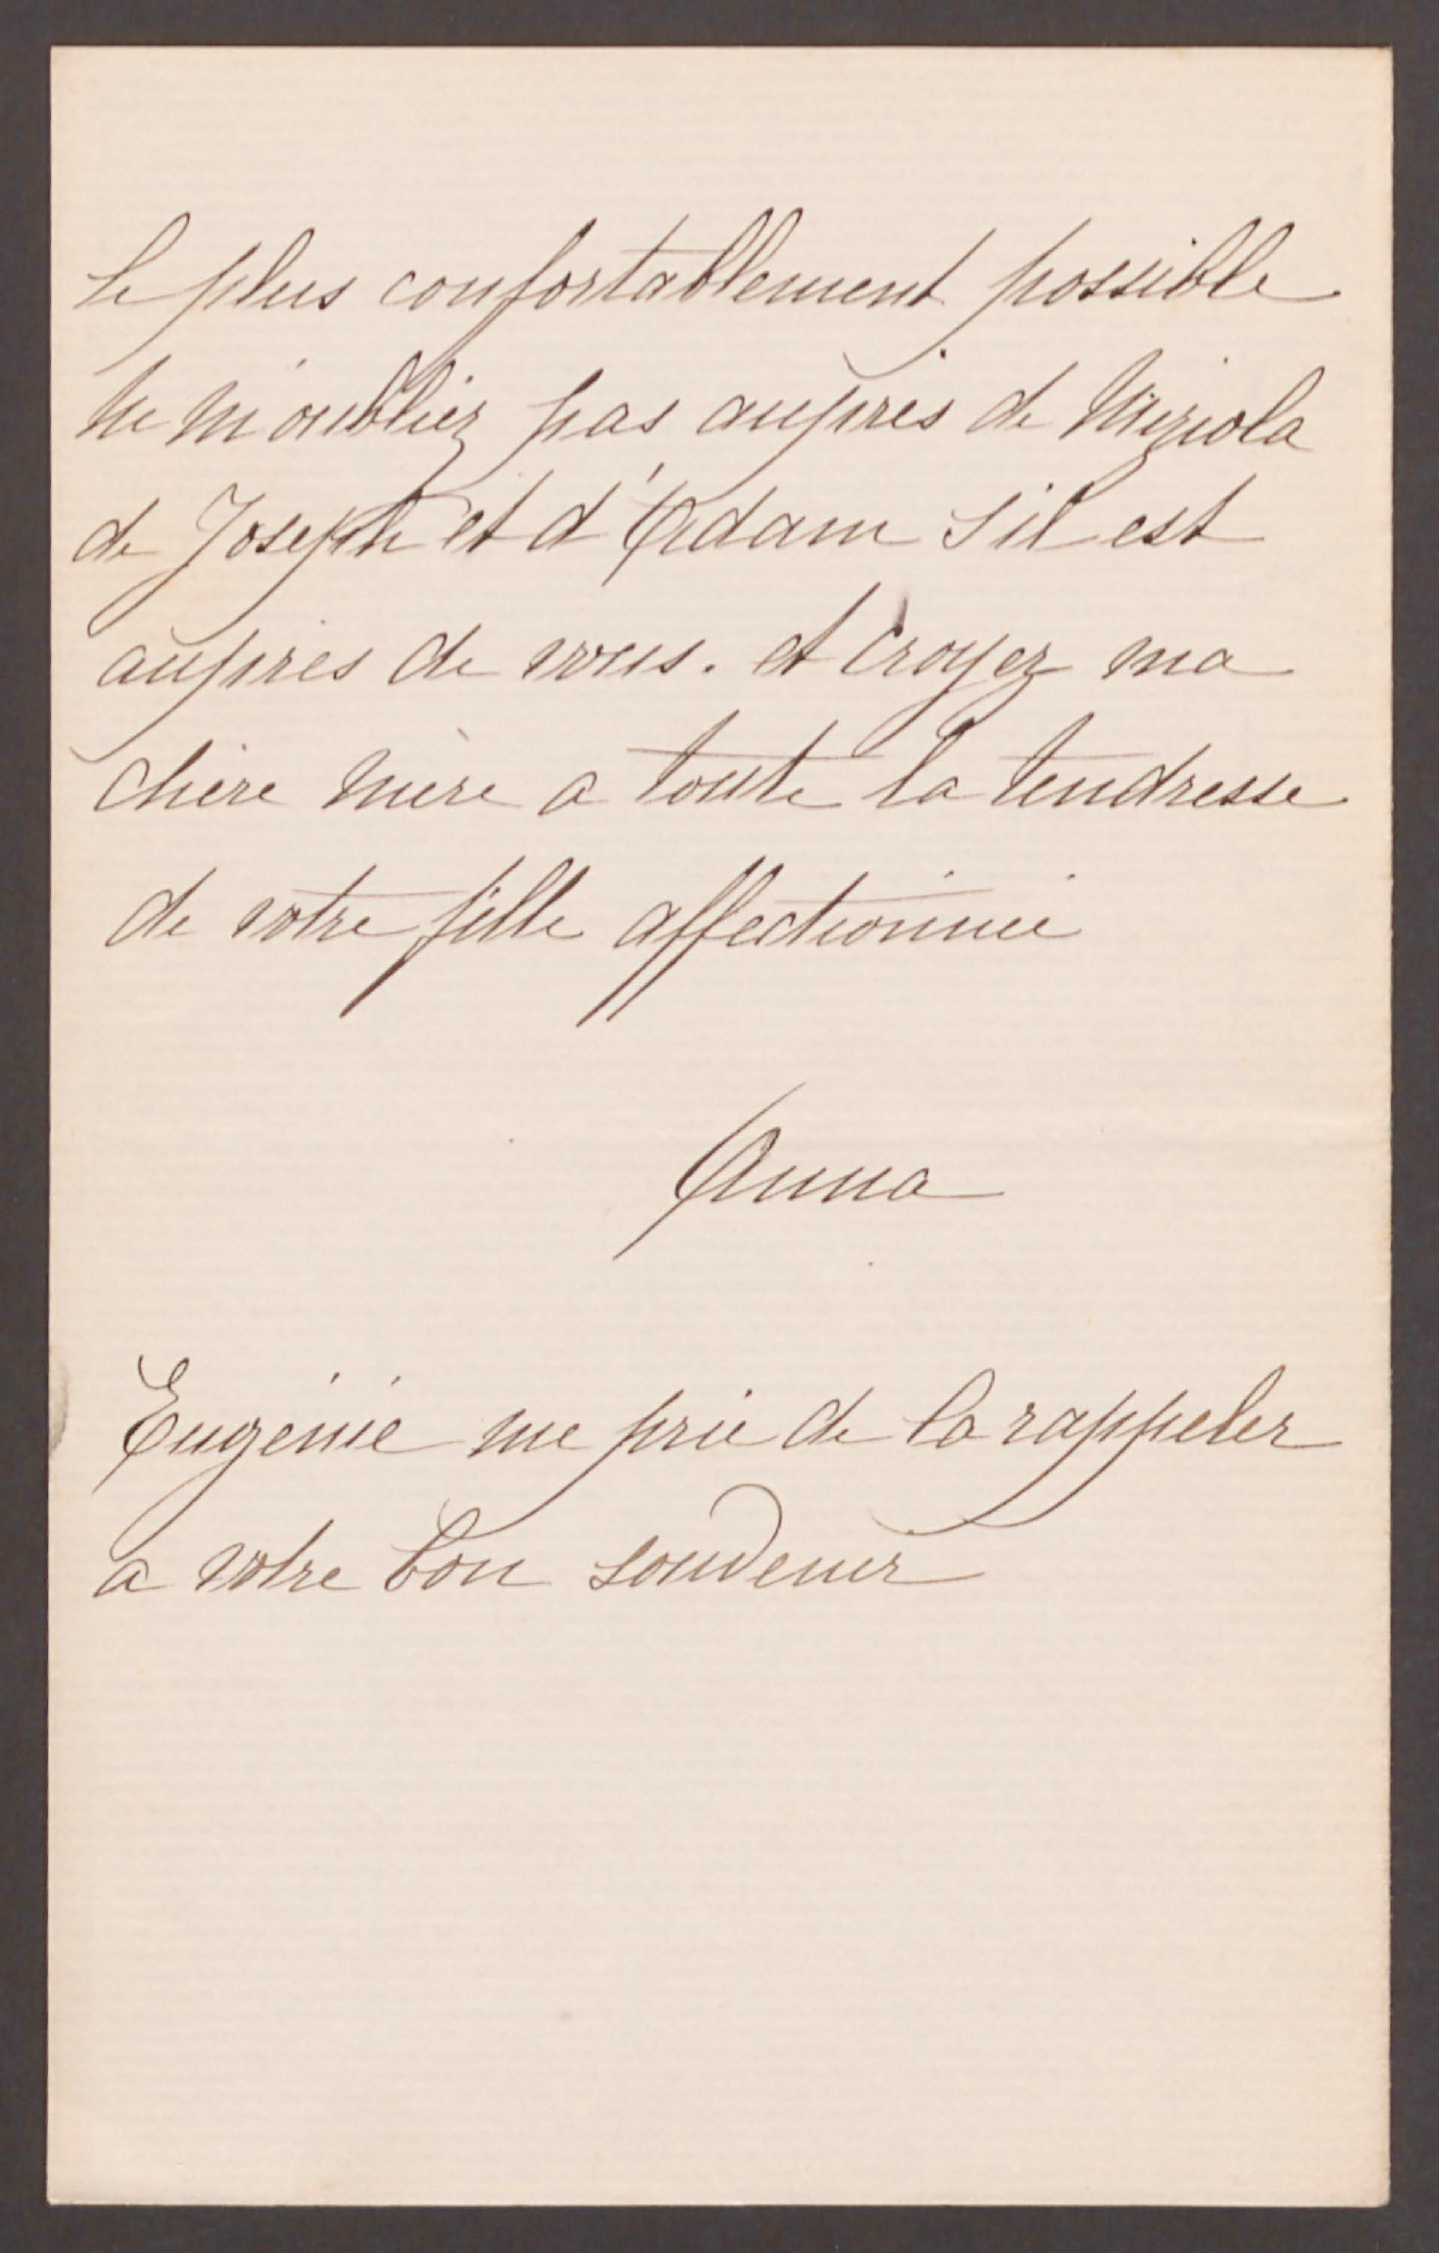 le plus confortablement possible
ne m'oubliez pas auprès de
de Joseph et d'Adam s'il est
auprès de vous. et croyez ma
chère mère a toute la tendresse
de votre fille affectionnée
Anna
Eugénie me prie de la rappeler
a votre bon souvenir